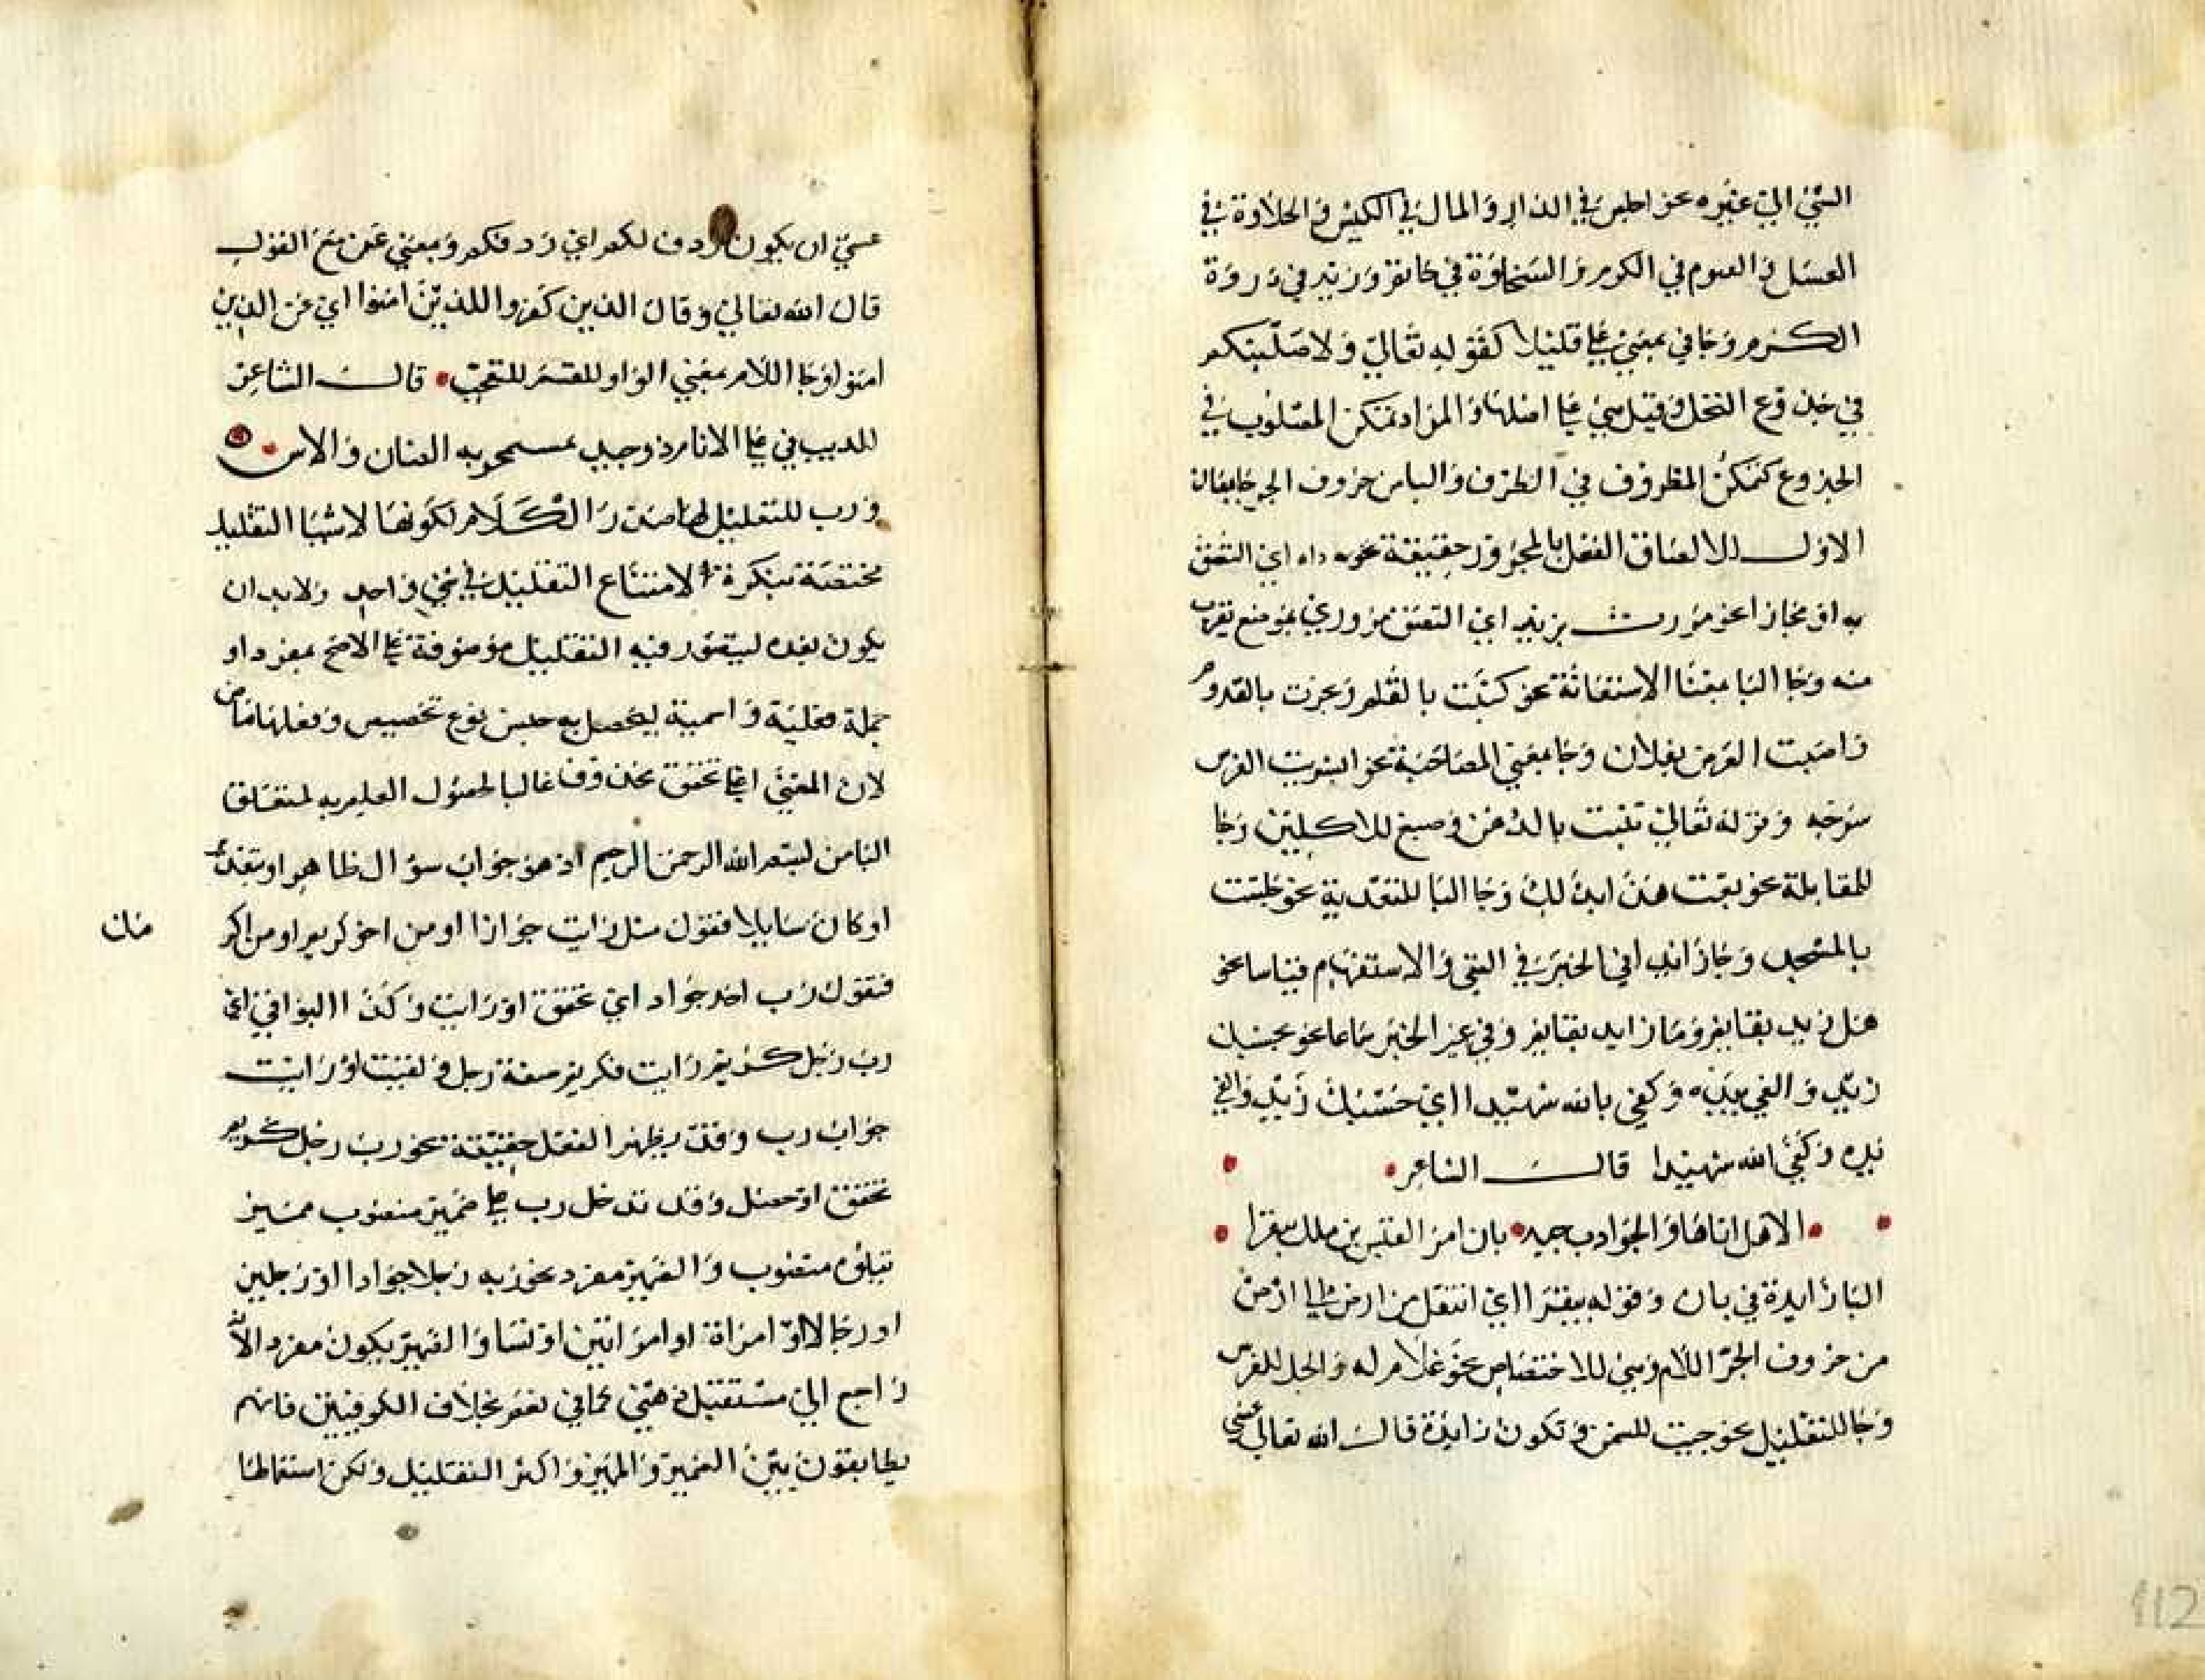 الشيء الي غيره نحو اجلس في الدار والمال في الكيس والحلاوة في
العسل والصوم في الكوم والسخاوة في خاتم وزيد في ذروة
الكرم وجا في بمعني علي قليلا كقوله تعالي ولاصلبنكم
في جذوع النخل وقيل هي علي اصلها والمراد تمكن المصلوب في
الجذوع كتمكن المظروف في الظرف والبا من حروف الجر
الاول للالصاق الفعل بالمجرور حقيقة نحو به داء اي التصق
به او مجازا نحو مررت بزيد اي التصق مروري بموضع يقرب
منه وجا البا بمعنا الاستعانة نحو كتبت بالقلم ونجرت بالقدوم
واصبت الغرض بفلان وجا بمعني المصاحبة نحو اشتريت الفرس
بسرجه وقوله تعالي تنبت بالدهن وصبغ للاكلين وجا
للمقابلة نحو بعت هذا بذلك وجا البا للتعدية نحو جلست
بالمسجد وجا زايدا في الخبر في النفي والاستفهام قياسا نحو
هل زيد بقايم وما زيد بقايم وفي غير الخبر سماعا نحو بحسبك
زيد والقي بيده وكفي بالله شهيدا اي حسبك زيد والقي
يده وكفي الله شهيدا قال الشاعر
الا هل اتاها والحوادث جمة بان امر القيس بن ملك بيقرا
البا زايدة في بان وقوله بيقرا اي انتقل من ارض الي ارض
من حروف الجر اللام وهي للاختصاص نحو غلام له والجل للفرس
وجا للتعليل نحو جيت للسمن وتكون زايدة قال الله تعالي عسي
عسي ان يكون ردف لكم اي ردفكم وبمعني عن مع القول
قال الله تعالي وقال الذين كفروا للذين امنوا اي عن الذين
امنوا وجا اللام بمعني الواو للقسم للتعجب قال الشاعر
لله يبقي علي الايام ذو حيد بمشمخر به الضيان والاس
ورب للتقليل لها صدر الكلام لكونها لانشا التقليل
مختصة بنكرة لامتناع التقليل في شي واحد ولا بد ان
يكون بعده ليتصور فيه التقليل موصوفة علي الاصح بمفرد او
جملة فعلية واسمية ليحصل به جنس نوع تخصيص وفعلها ماض
لان المعني انما تحقق محذوف غالبا لحصول العلم به لمتعلق
البا من بسم الله الرحمن الرحيم اذ هو جواب سوال ظاهر او مقدر
او كان سايلا فقول مثل رايت جوادا او من اخو كريم او من اكر
فتقول رب احد جواد اي تحقق او رايت وكذا البواقي اي
رب رجل كريم رايت فكريم صفة رجل ولقيت او رايت
جواب رب وقد يظهر الفعل حقيقة نحو رب رجل كريم
تحقق او حصل وقد تدخل رب علي ضمير منصوب مميز
بنكرة منصوب والضمير مفرد نحو ربه رجلا جوادا او رجلين
او رجالا او امراة او امراتين او نسا والضمير يكون مفرد الانه
راجع الي مستقبل ذهني كما في نعم بخلاف الكوفيين فانهم
يطابقون بين الضمير والمميز واكثر التقليل ولكن استعمالها
112